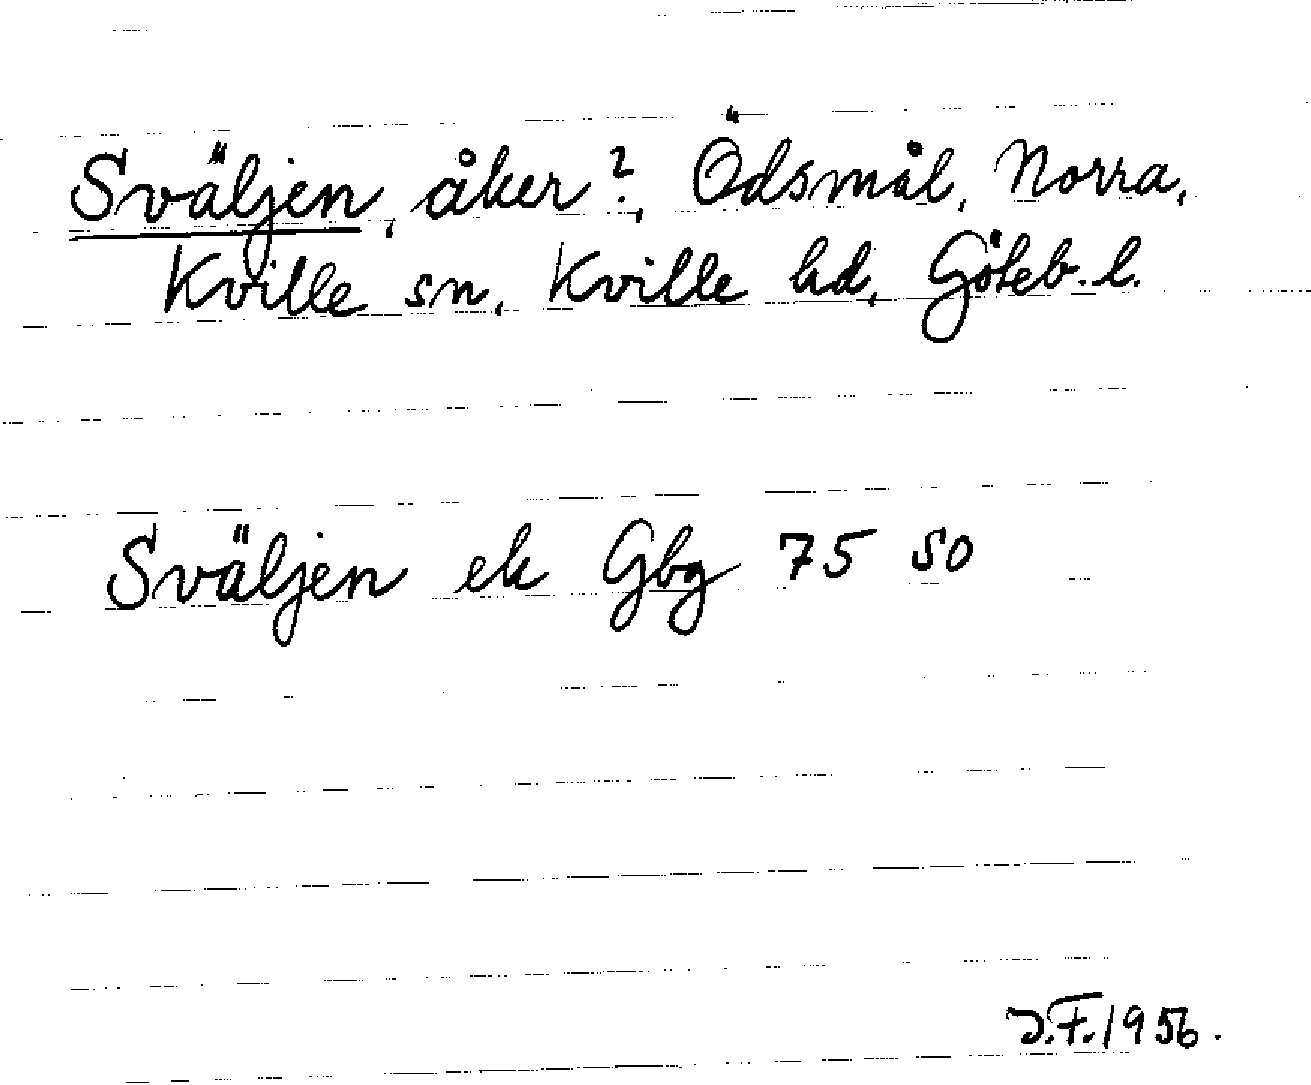 Sväljen, åker?, Ödsmål, Norra,
Kville sn, Kville hd, Göteb. l.
Sväljen ek Gbg 75 SO
J.F. 1956.